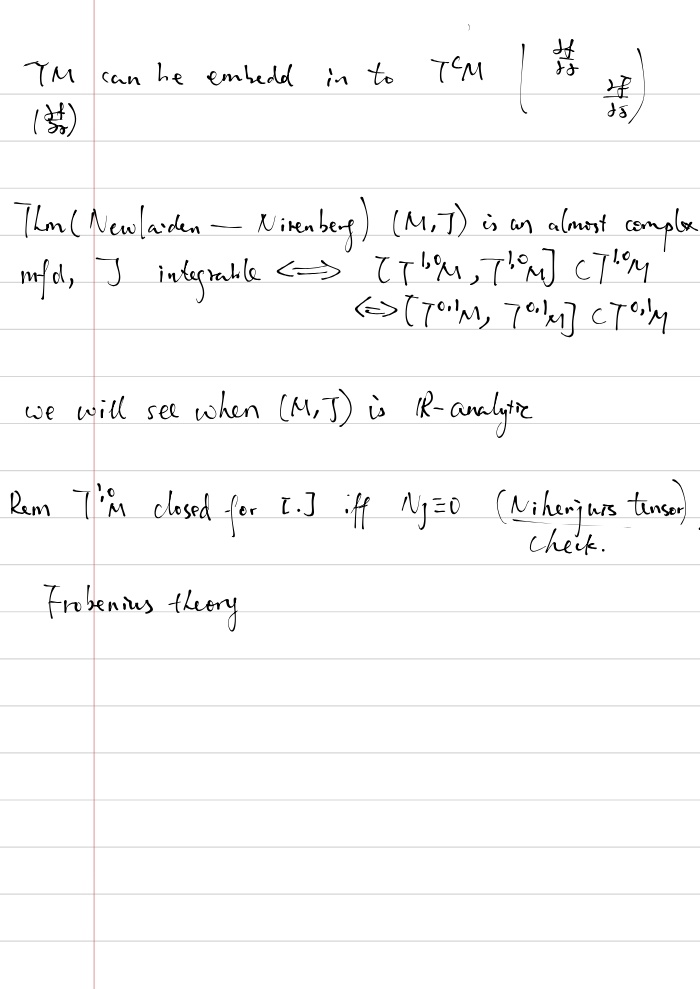 TM can be embedd in to T^cM ( ∂f/∂z ∂f̄/∂z̄ )
(∂f/∂z)
Thm (Newlaiden — Nirenberg) (M,J) is an almost complex
mfd, J integrable <=> [T^{1,0}M, T^{1,0}M] ⊂ T^{1,0}M
<=> [T^{0,1}M, T^{0,1}M] ⊂ T^{0,1}M
we will see when (M,J) is R-analytic
Rem T^{1,0}M closed for [.] iff N_J≡0 (Nihenjuis tensor).
check.
Frobenius theory